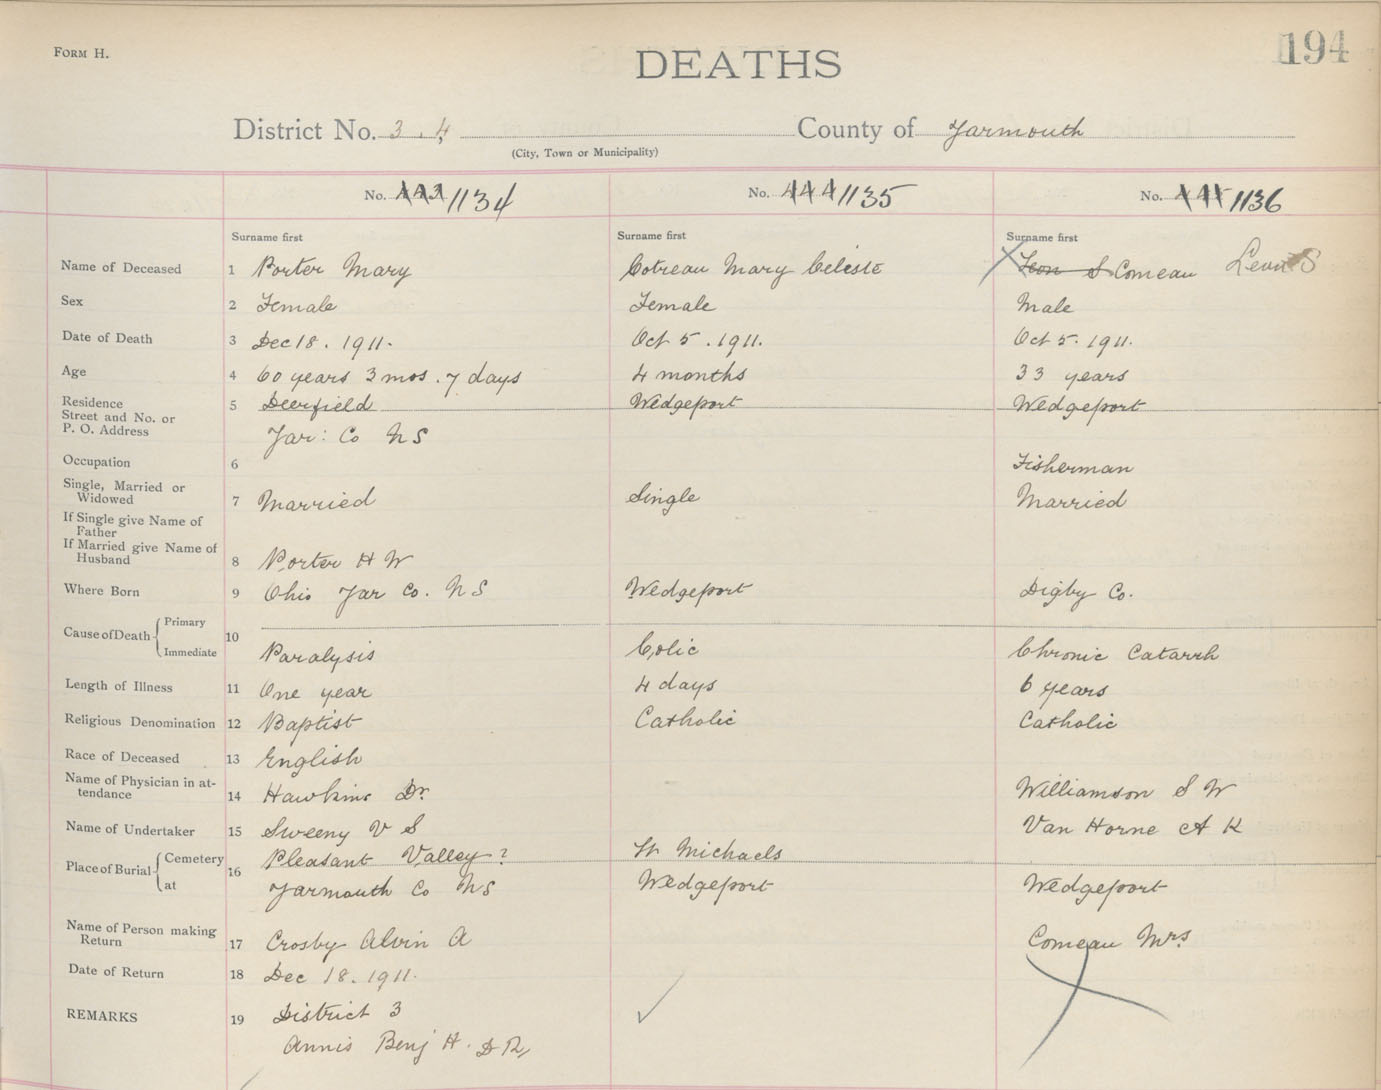 FORM H.
DEATHS
194
District No. 3 . 4 County of Yarmouth
(City, Town or Municipality)
No. 443 1134 No. 444 1135 No. 445 1136
Surname first Surname first Surname first
Name of Deceased 1 Porter Mary Cotreau Mary Celeste Leon S Comeau Leon S
Sex 2 Female Female Male
Date of Death 3 Dec 18. 1911. Oct 5. 1911. Oct 5. 1911.
Age 4 60 years 3 mos. 7 days 4 months 33 years
Residence
Street and No. or
P. O. Address 5 Deerfield Wedgeport Wedgeport
Yar: Co NS
Occupation 6 Fisherman
Single, Married or
Widowed 7 Married Single Married
If Single give Name of
Father
If Married give Name of
Husband 8 Porter H W
Where Born 9 Ohio Yar Co. NS Wedgeport Digby Co.
Cause of Death Primary
Immediate 10 Paralysis Colic Chronic Catarrh
Length of Illness 11 One year 4 days 6 years
Religious Denomination 12 Baptist Catholic Catholic
Race of Deceased 13 English
Name of Physician in at-
tendance 14 Hawkins Dr. Williamson S W
Name of Undertaker 15 Sweeny V S Van Horne A K
Place of Burial Cemetery 16 Pleasant Valley? St Michaels
at Yarmouth Co NS Wedgeport Wedgeport
Name of Person making
Return 17 Crosby Alvin A Comeau Mrs
Date of Return 18 Dec 18. 1911.
REMARKS 19 District 3
Annis Benj H. D R,